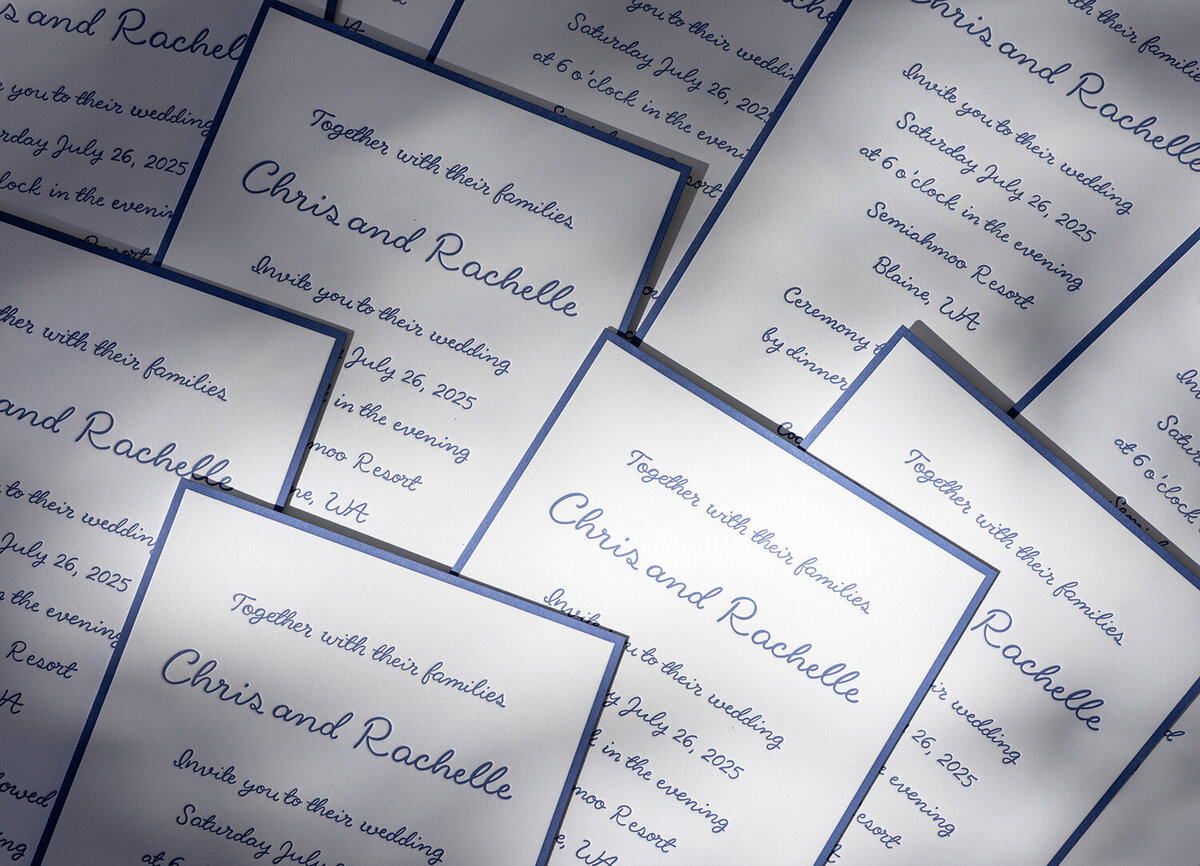 s and Rachell
you to their wedding
rday July 26, 2025
lock in the evenin
Resort
you to their weddin
Saturday July 26, 202
at 6 o'clock in the eveni
sort
Together with their families
Chris and Rachelle
Invite you to their wedding
July 26, 2025
in the evening
moo Resort
ne, WA
th their families
Chris and Rachelle
Invite you to their wedding
Saturday July 26, 2025
at 6 o'clock in the evening
Semiahmoo Resort
Blaine, WA
Ceremony
by dinner
Coc
In
Satu
at 6 o'cloc
her with their families
and Rachelle
to their wedding
July 26, 2025
the evening
Resort
WA
owed
ng
Together with their families
Chris and Rachelle
Invite you to their wedding
Saturday July
at 6
Together with their families
Chris and Rachelle
Invite you to their wedding
y July 26, 2025
in the evening
moo Resort
e, WA
Together with their families
Rachelle
ir wedding
26, 2025
evening
esort